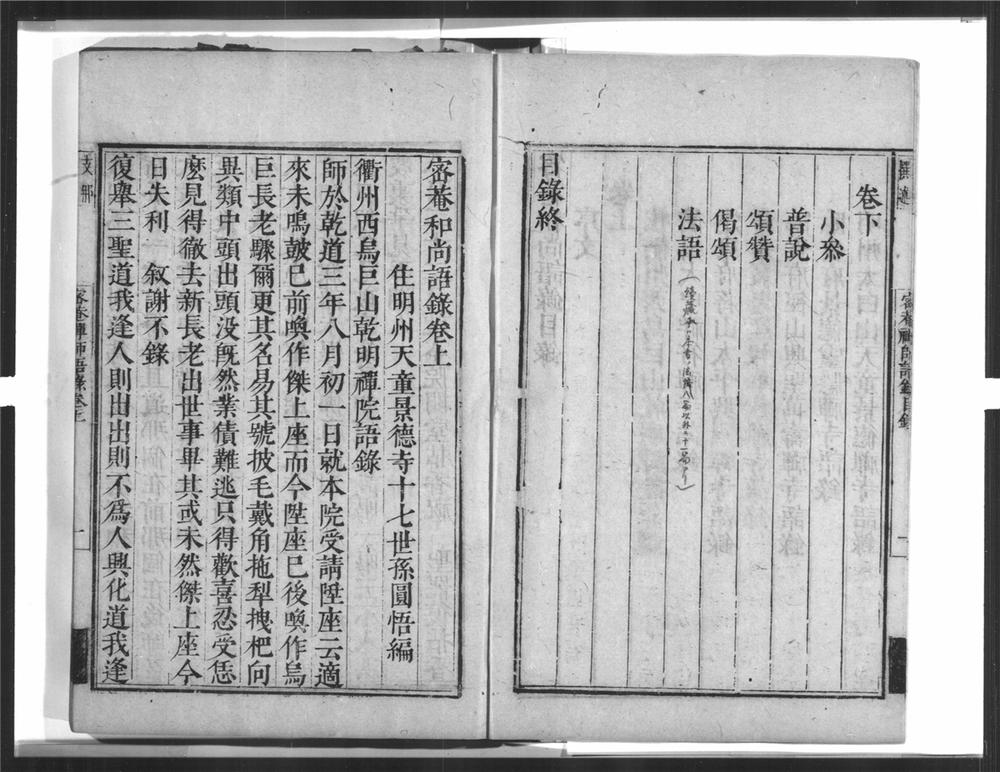 卷下
小叅
普說
頌贊
偈頌
法語
目錄終
密菴禪師語錄目錄
一
密菴和尚語錄卷上
住明州天童景德寺十七世孫圓悟編
衢州西烏巨山乾明禪院語錄
師於乾道三年八月初一日就本院受請陞座云適
來未鳴皷已前喚作傑上座而今陞座已後喚作烏
巨長老驟爾更其名易其號披毛戴角拖犁拽杷向
異類中頭出頭没旣然業債難逃只得歡喜忍受恁
麼見得徹去新長老出世事畢其或未然傑上座今
日失利　敘謝不錄
復舉三聖道我逢人則出出則不爲人興化道我逢
密菴禪師語錄卷上
一